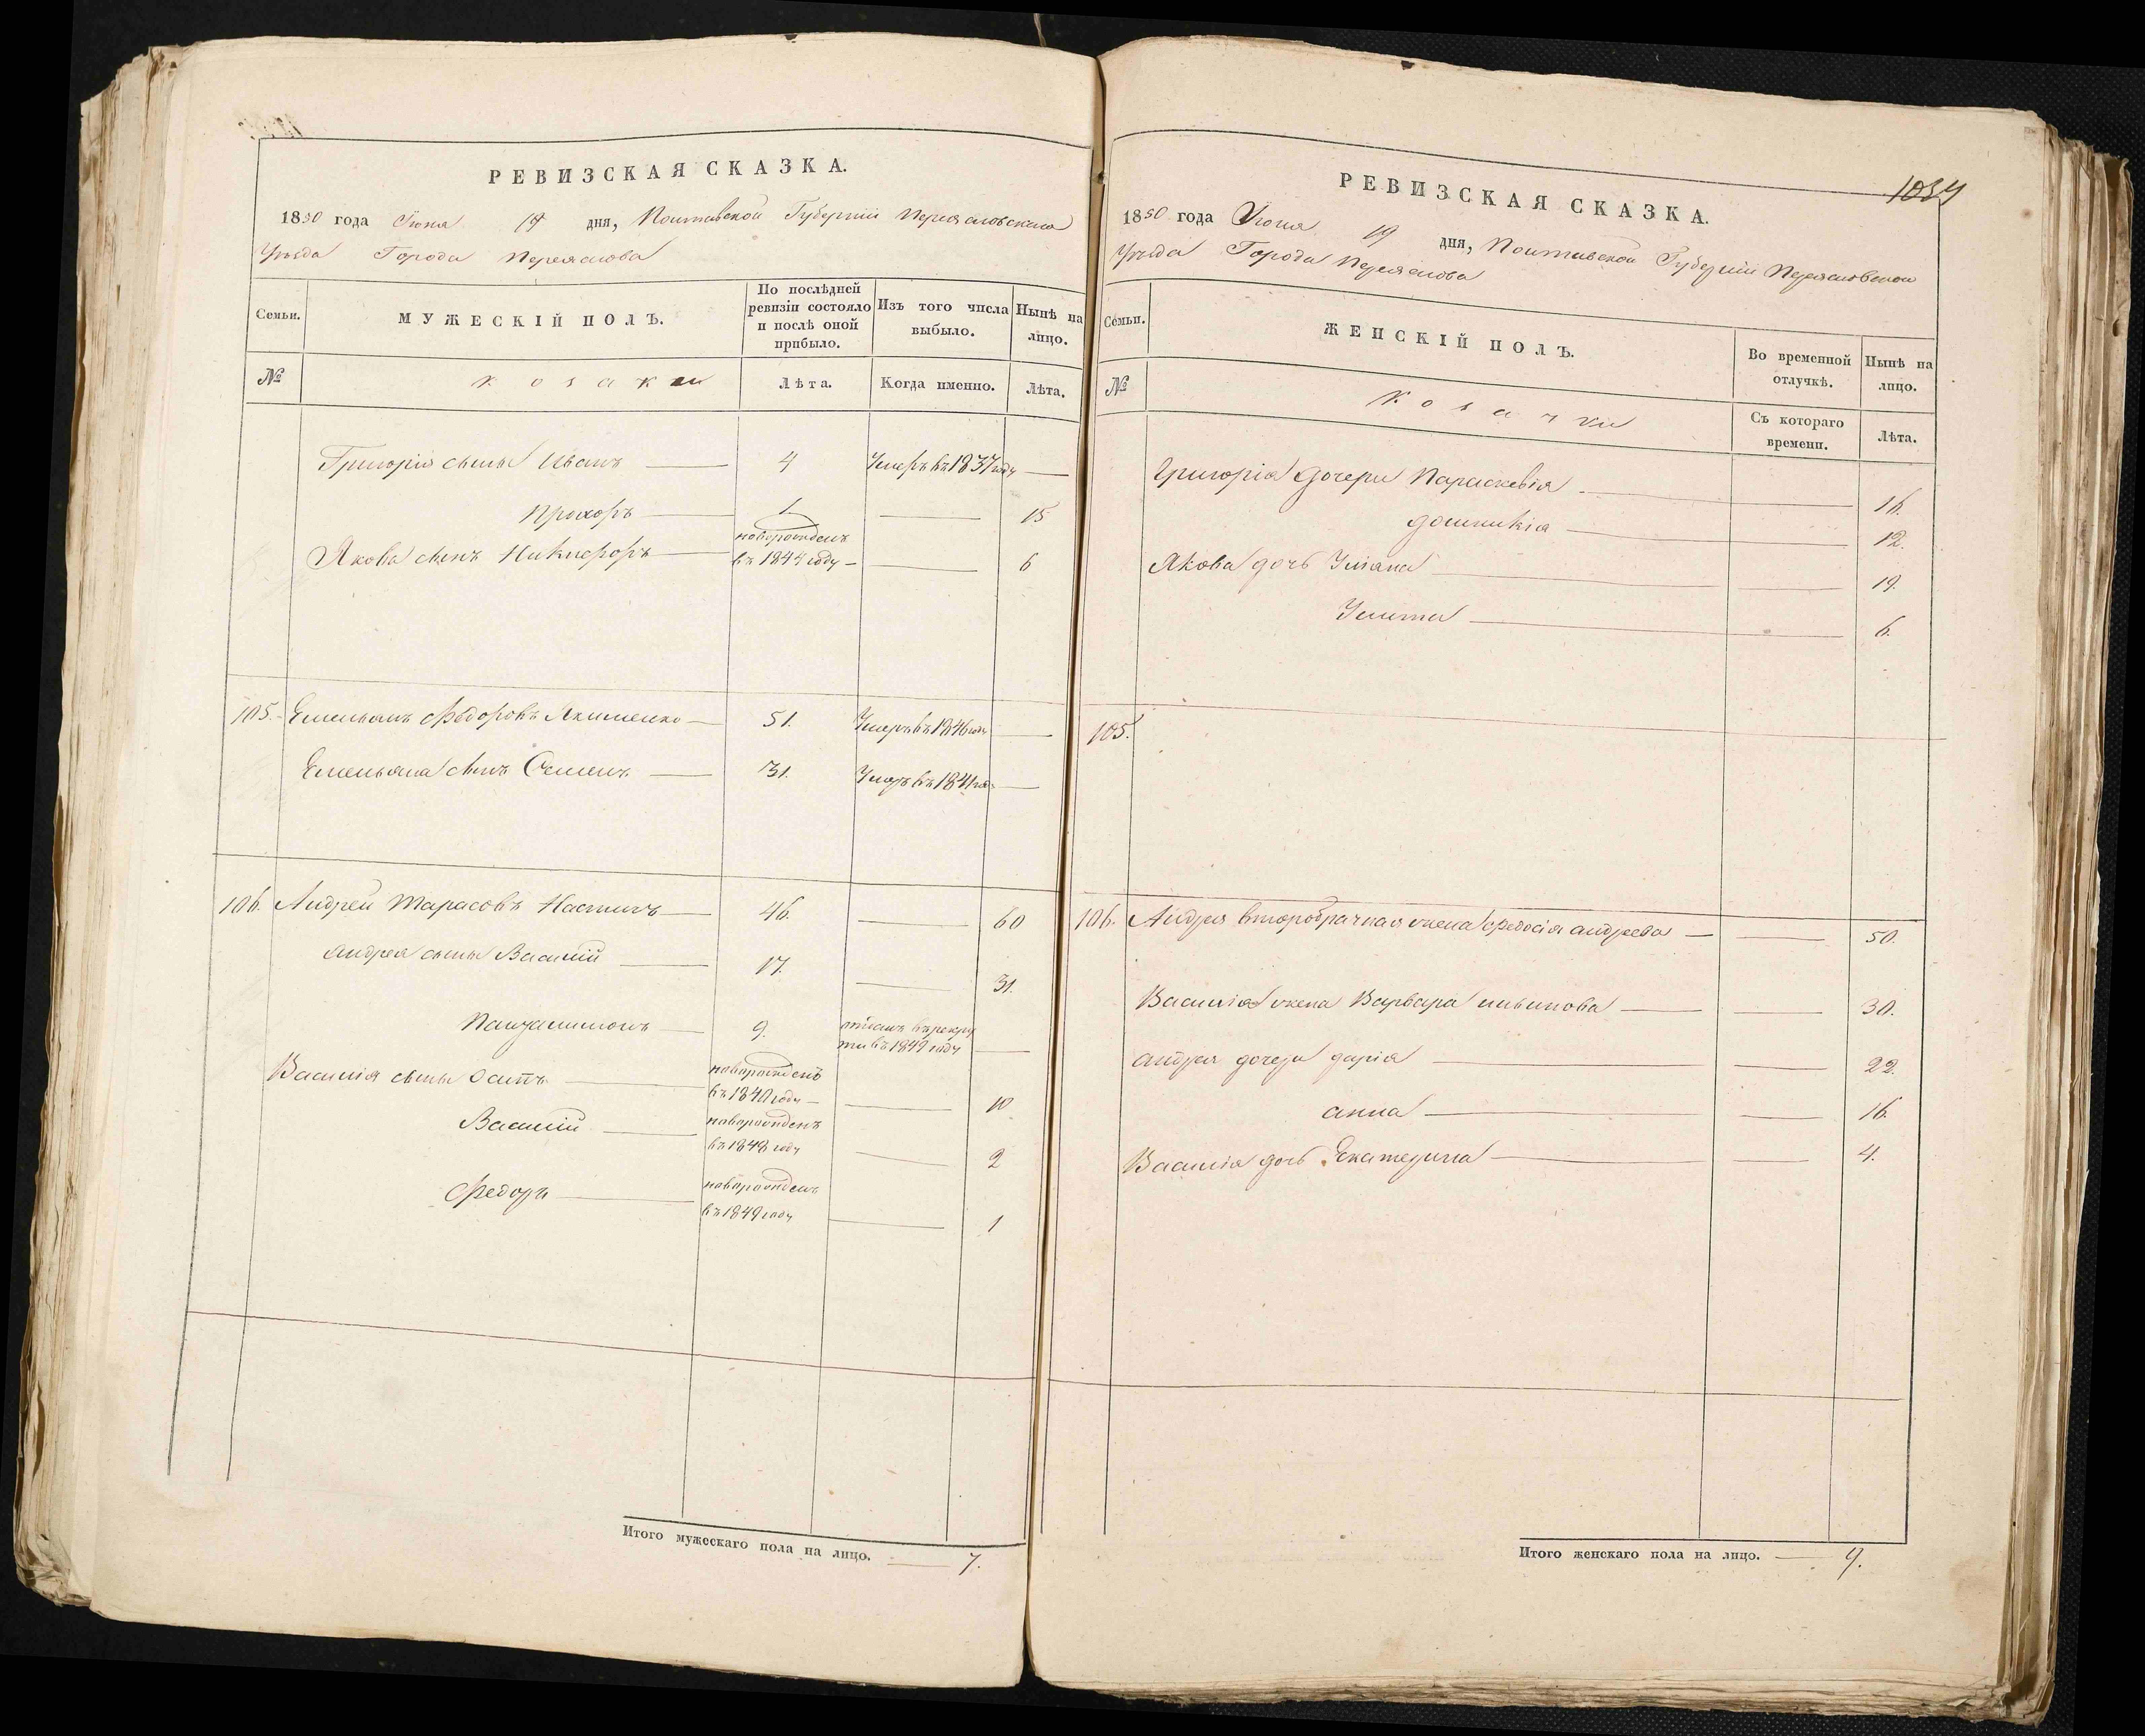 РЕВИЗСКАЯ СКАЗКА.
1850 года Іюня 19 дня, Полтавской Губерніи Переясловскаго
Уѣзда Города Переяслова
Семьи.
МУЖЕСКІЙ ПОЛЪ.
По послѣдней ревизіи состояло и послѣ оной прибыло.
Изъ того числа выбыло.
Нынѣ на лицо.
№
козаки
Лѣта.
Когда именно.
Лѣта.
Григорія сыны Иванъ 4 Умеръ въ 1837 году
Прохоръ 1 15
Якова сынъ Никифоръ новорожденъ въ 1844 году 6
105. Емельянъ Федоровъ Якименко 51. Умеръ въ 1846 году
Емельяна сынъ Семенъ 31. Умеръ въ 1841 году
106. Андрей Тарасовъ 46. 60
Андрея сыны Василій 17. 31.
9. въ рекруты въ 1849 году
Василія сыны Осипъ новорожденъ въ 1840 году 10
Василій новорожденъ въ 1848 году 2
Федоръ новорожденъ въ 1849 году 1
Итого мужескаго пола на лицо. 7.
1034
РЕВИЗСКАЯ СКАЗКА.
1850 года Іюня 19 дня, Полтавской Губерніи Переясловскаго
Уѣзда Города Переяслова
Семьи.
ЖЕНСКІЙ ПОЛЪ.
Во временной отлучкѣ.
Нынѣ на лицо.
№
козачки
Съ котораго времени.
Лѣта.
Григорія дочери Параскевія 16.
Домникія 12.
Якова дочь Уліяна 19.
Улита 6.
105.
106. Андрея второбрачная жена Федосія Андреева 50.
Василія жена Варвара 30.
Андрея дочери Дарія 22.
Анна 16.
Василія дочь Екатерина 4.
Итого женскаго пола на лицо. 9.